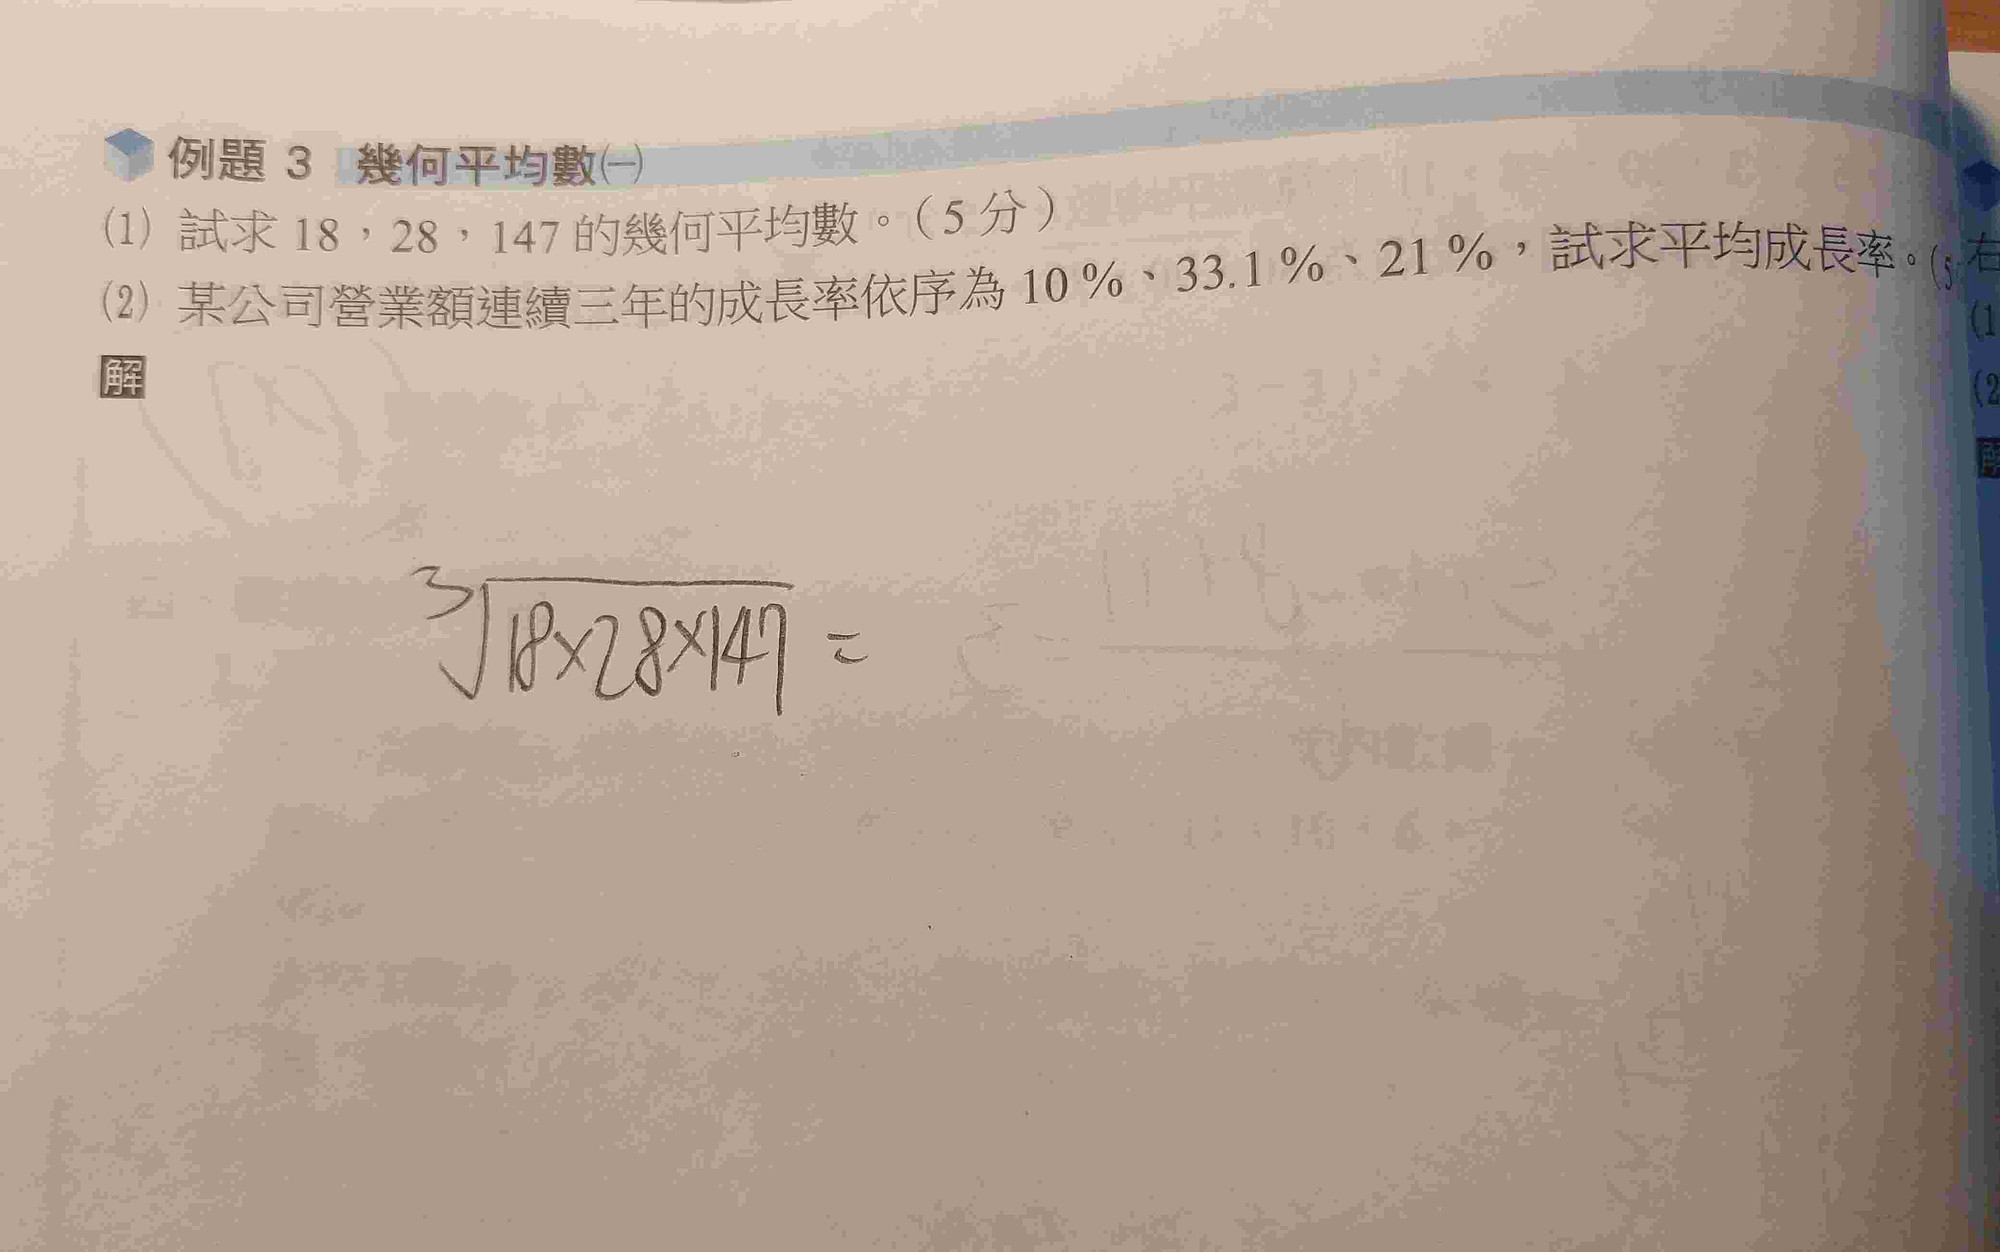 例題 3 幾何平均數㈠
(1) 試求 18，28，147 的幾何平均數。（5 分）
(2) 某公司營業額連續三年的成長率依序為 10 %、33.1 %、21 %，試求平均成長率。(5
解
∛18×28×147 =
右
(1
(2